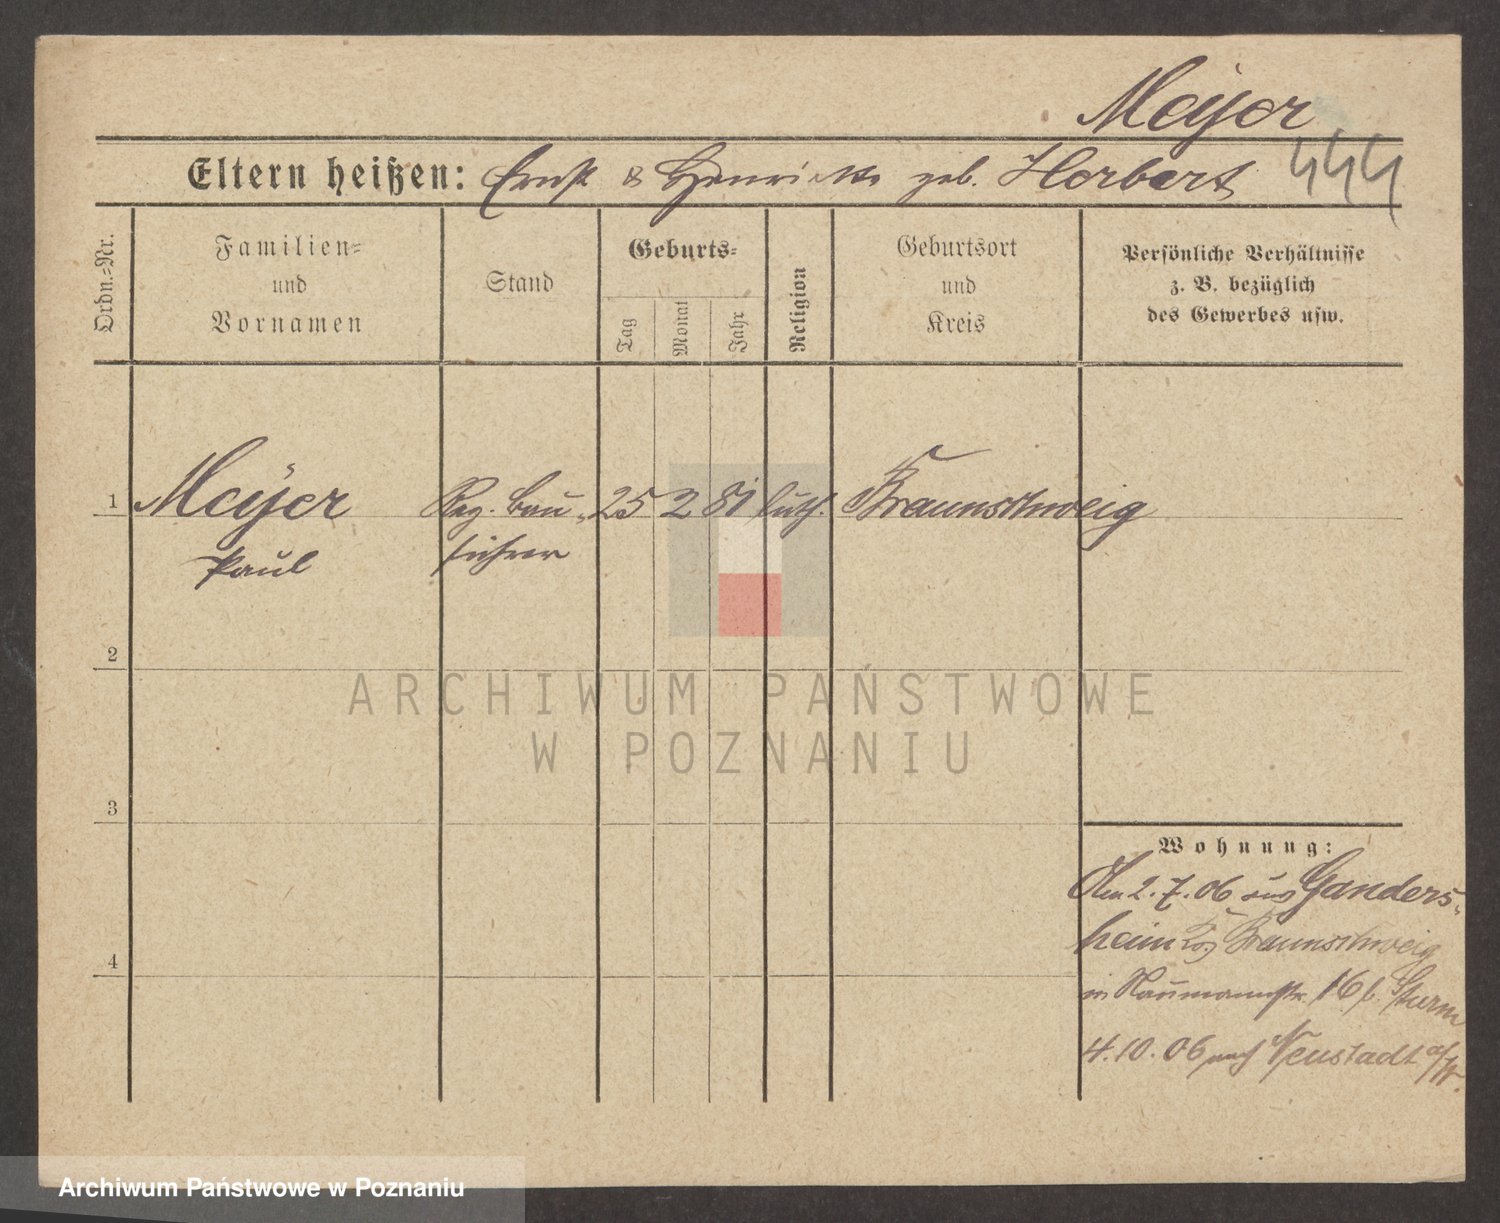 Meyer
Eltern heißen: Ernst & Henriette geb. Herbart
444
Ordn.=Nr.
Familien=
und
Vornamen
Stand
Geburts=
Tag
Monat
Jahr
Religion
Geburtsort
und
Kreis
Persönliche Verhältnisse
z. B. bezüglich
des Gewerbes usw.
1 Meyer Reg. Bau= 25 2 81 luth. Braunschweig
Paul führer
2
ARCHIWUM PAŃSTWOWE
W POZNANIU
3
Wohnung:
Am 2.7.06 aus Ganders=
heim Braunschweig
in Naumannstr. 16 b. Sturm
4
4.10.06 nach Neustadt a/W.
Archiwum Państwowe w Poznaniu